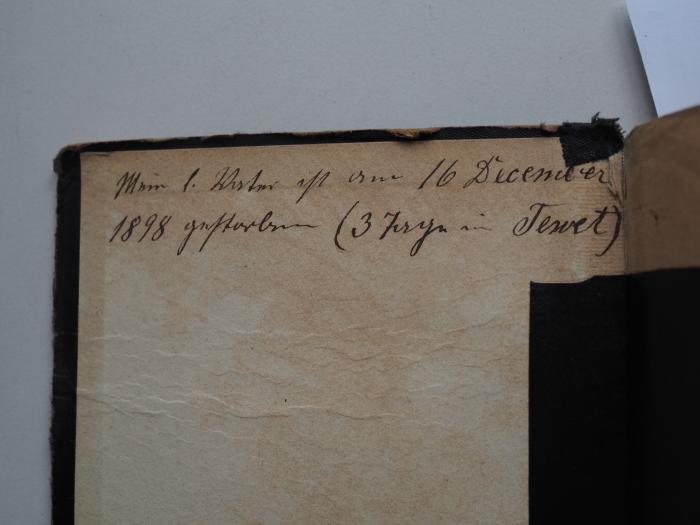 Mein l. Vater ist am 16 December
1898 gestorben (3 Tage in Tewet)